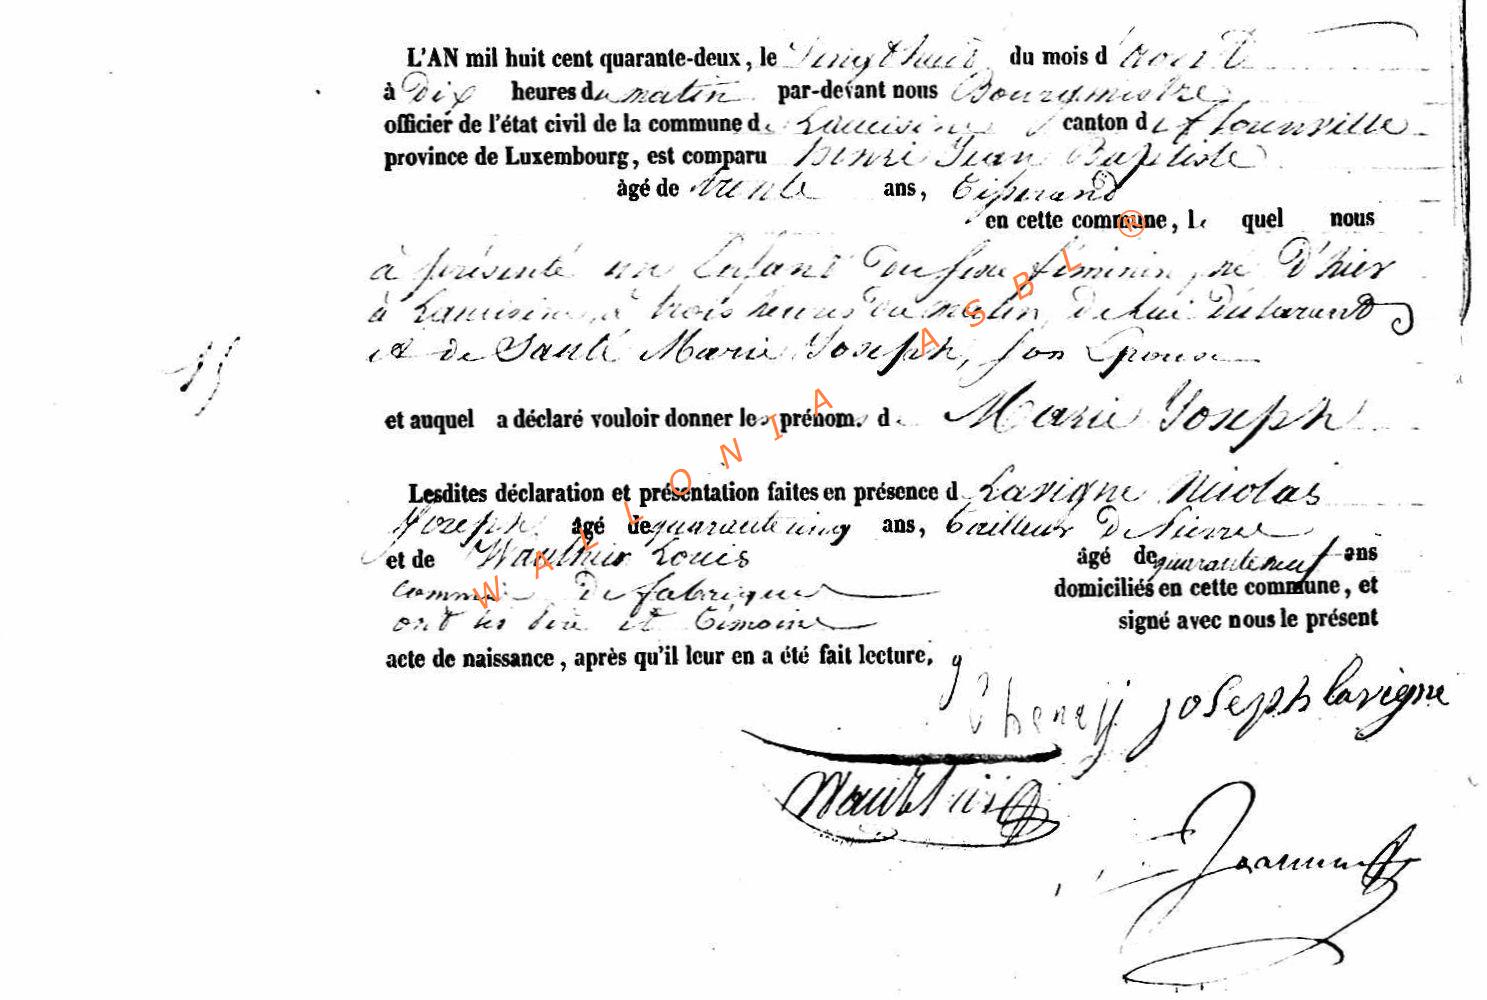 L'AN mil huit cent quarante-deux, le Vingt huit du mois d'aout
à Dix heures du matin par-devant nous Bourgmestre
officier de l'état civil de la commune de Lacuisine canton de Florenville
province de Luxembourg, est comparu henri Jean Baptiste
âgé de trente ans, Tisserand
en cette commune, le quel nous
à présenté un Enfant du sexe féminin, né D'hier
à Lacuisine, à trois heures du matin, de lui déclarant
et de Santé Marie Joseph, son Epouse
15
et auquel a déclaré vouloir donner les prénoms de Marie Joseph
Lesdites déclaration et présentation faites en présence de Lavigne Nicolas
Joseph âgé de quarante cinq ans, tailleur De Pierre
et de Wauthier Louis âgé de quarante neuf ans
commis De fabrique domiciliés en cette commune, et
ont les père et témoins signé avec nous le présent
acte de naissance, après qu'il leur en a été fait lecture.
j henry joseph lavigne
Wauthier
WALLONIA ASBL ®